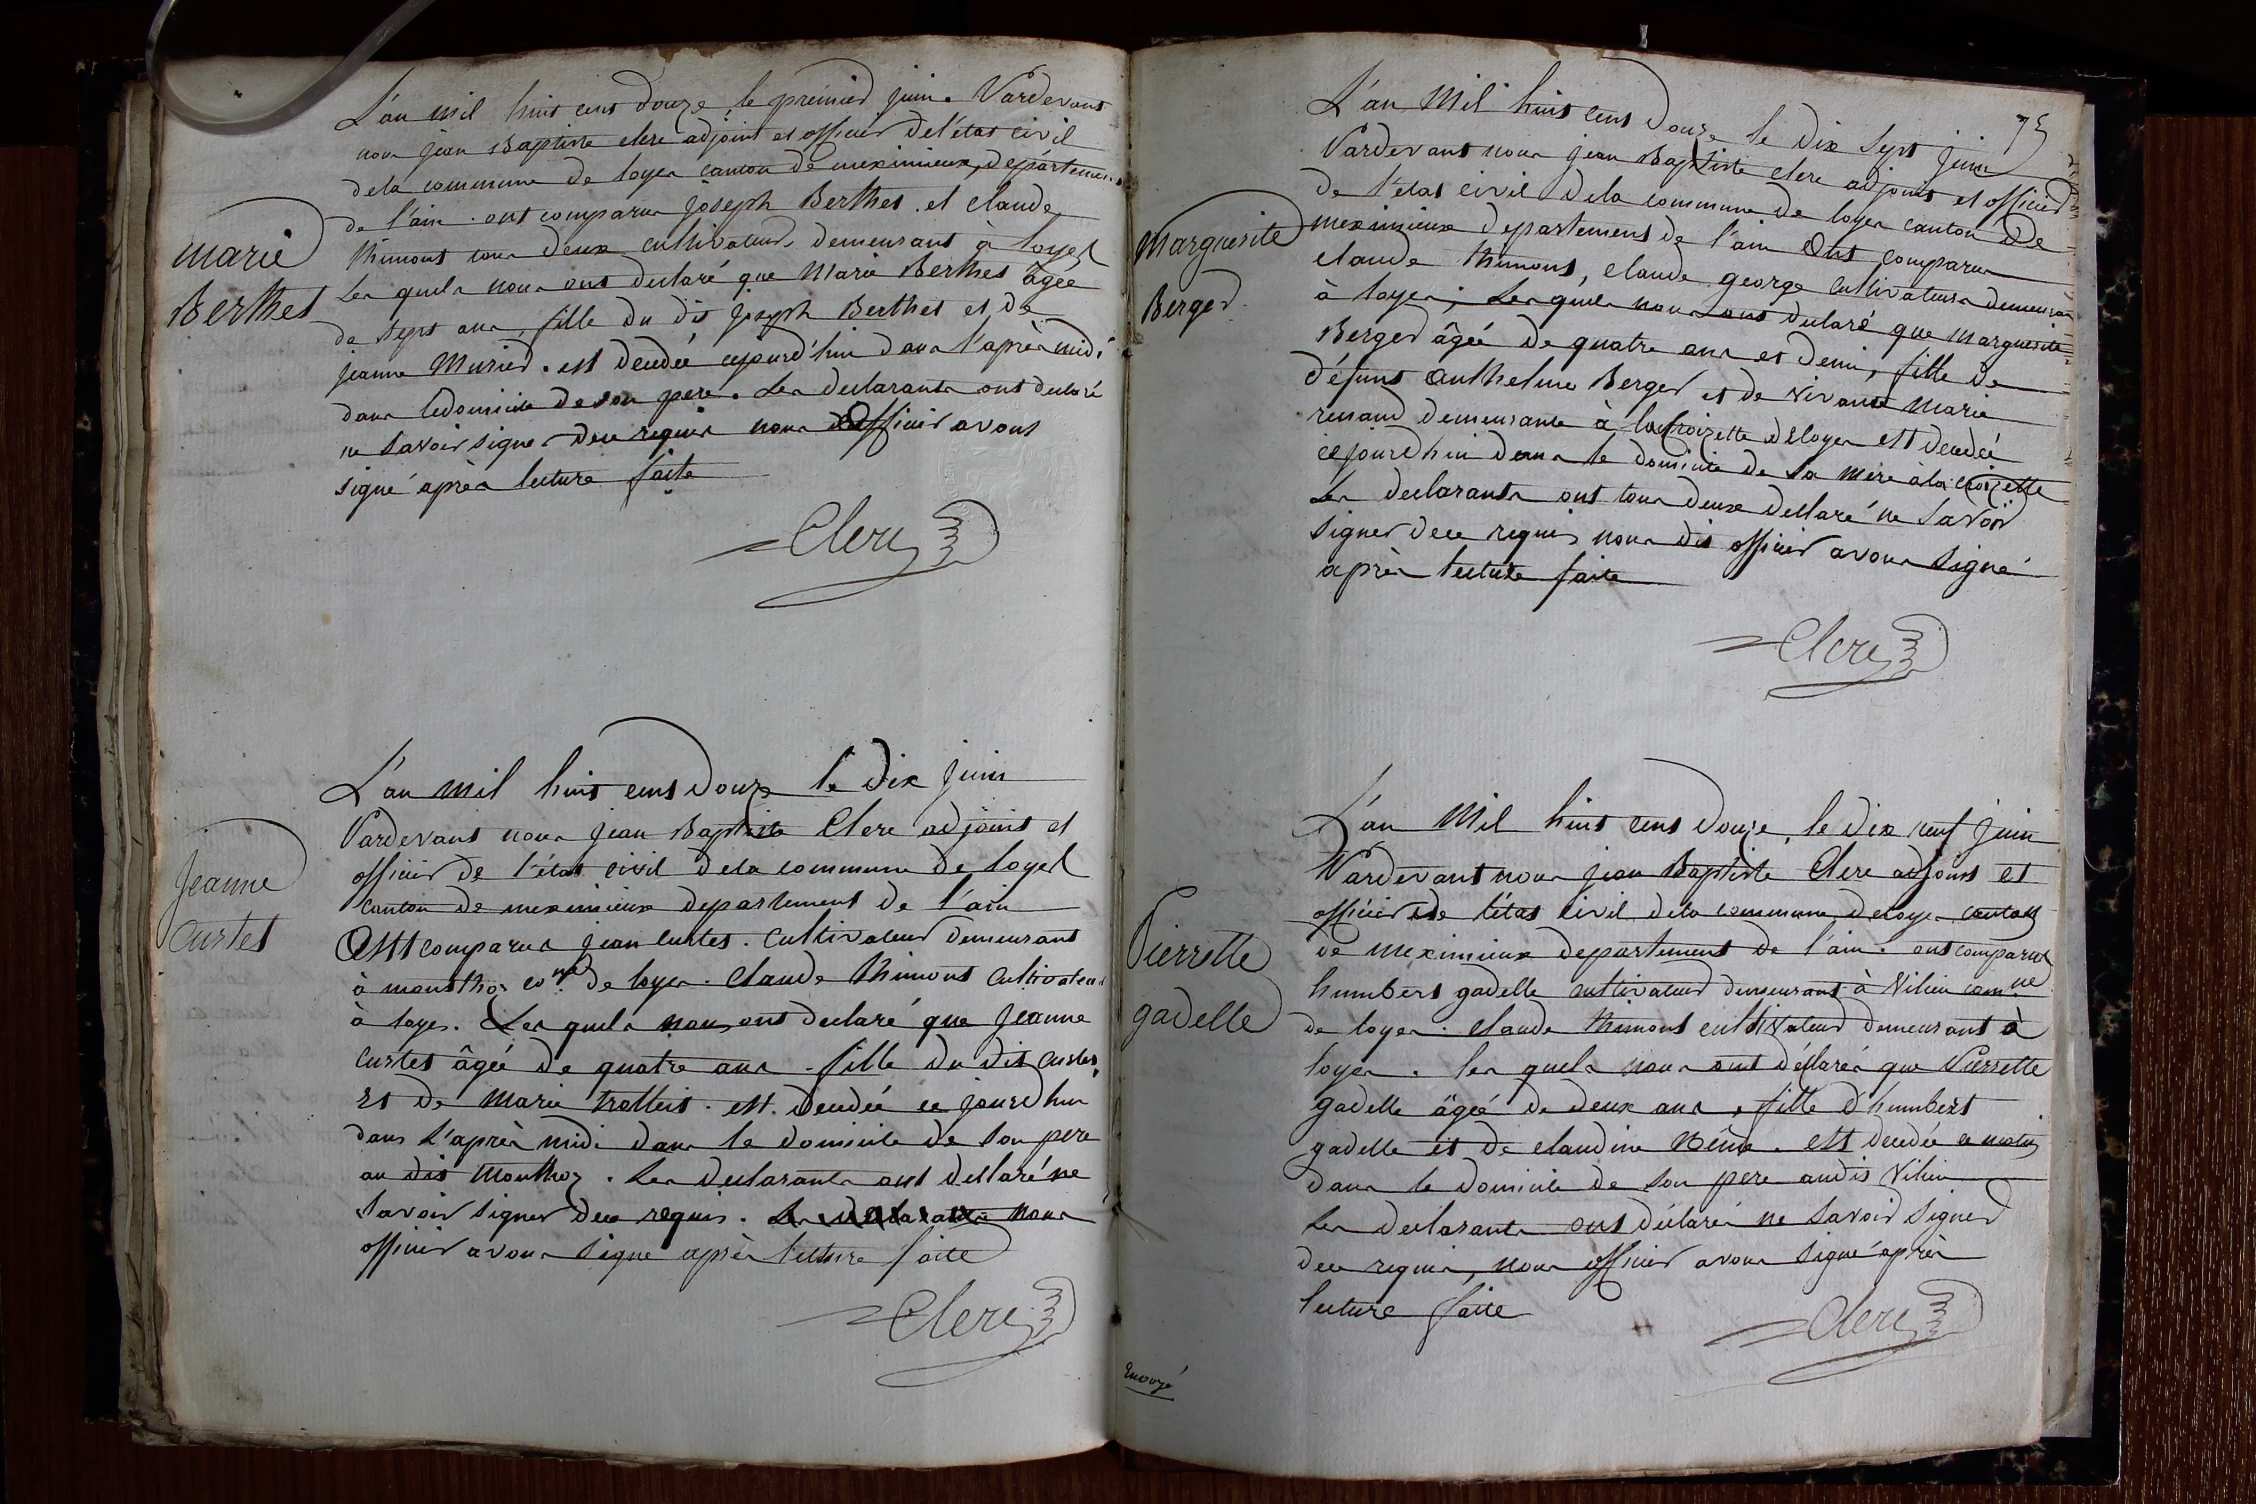 L'an mil huit cent douze le premier juin. Pardevant
nous jean Baptiste clerc adjoint et officier de l'état civil
de la commune de loyes canton de meximieux, département
de l'ain. ont comparus joseph Berthet. et claude
thimont tous deux cultivateurs demeurant à loyes
Les quels nous ont declaré que Marie Berthet âgée
de sept ans, fille du dit joseph Berthet et de
jeanne Murier. est decedée cejourd'hui dans l'après midi
dans le domicile de son pere. Les declarants ont declaré
ne savoir signer de ce requis nous Officier avons
signé après lecture faite
Clerc
marie
Berthet
L'an mil huit cent Douze le dix juin
Pardevant nous jean Baptiste Clerc adjoint et
officier de l'état civil de la commune de loyes
canton de meximieux departement de l'ain
Ont comparus jean curtet. cultivateur demeurant
à monthoz comne de loyes. Claude thimont cultivateur
à loyes. Les quels nous ont declaré que jeanne
curtet âgée de quatre ans. fille du dit curtet,
et de marie trollet. est. decedée ce jourd'hui
dans l'après midi dans le domicile de son pere
au dit monthoz. Les declarants ont declaré ne
savoir signer de ce requis. nous
officier avons signe après lecture faite
Clerc
jeanne
curtet
75
L'an Mil huit cent Douze le dix sept juin
Pardevant nous jean Baptiste clerc adjoint et officier
de l'etat civil de la commune de loyes canton de
meximieux departement de l'ain Ont comparus
claude thimont, claude george cultivateurs demeurant
à loyes; Les quels nous ont declaré que marguerite
Berger âgée de quatre ans et demi, fille de
défunt anthelme Berger et de vivante marie
renaud demeurante à la croizette de loyes est decedée
cejourd'hui dans le domicile de sa mère à la croizette
Les declarants ont tous deux declaré ne savoir
signer de ce requis nous dit officier avons signé
après lecture faite
Clerc
Marguerite
Berger
L'an Mil huit cent Douze, le dix neuf juin
Pardevant nous jean Baptiste Clerc adjoint et
officier de l'état civil de la commune de loyes canton
de meximieux departement de l'ain. ont comparus
humbert gadelle cultivateur demeurant à Vilieu comne
de loyes. claude thimont cultivateur demeurant à
loyes. les quels nous ont déclarés que Pierrette
gadelle âgée de deux ans, fille d'humbert
gadelle et de claudine Nême. est decedée ce matin
dans le domicile de son pere audit Vilieu
Les declarants ont déclarés ne savoir signer
de ce requis, nous officier avons signé après
lecture faite
Clerc
Pierrette
gadelle
Envoyé